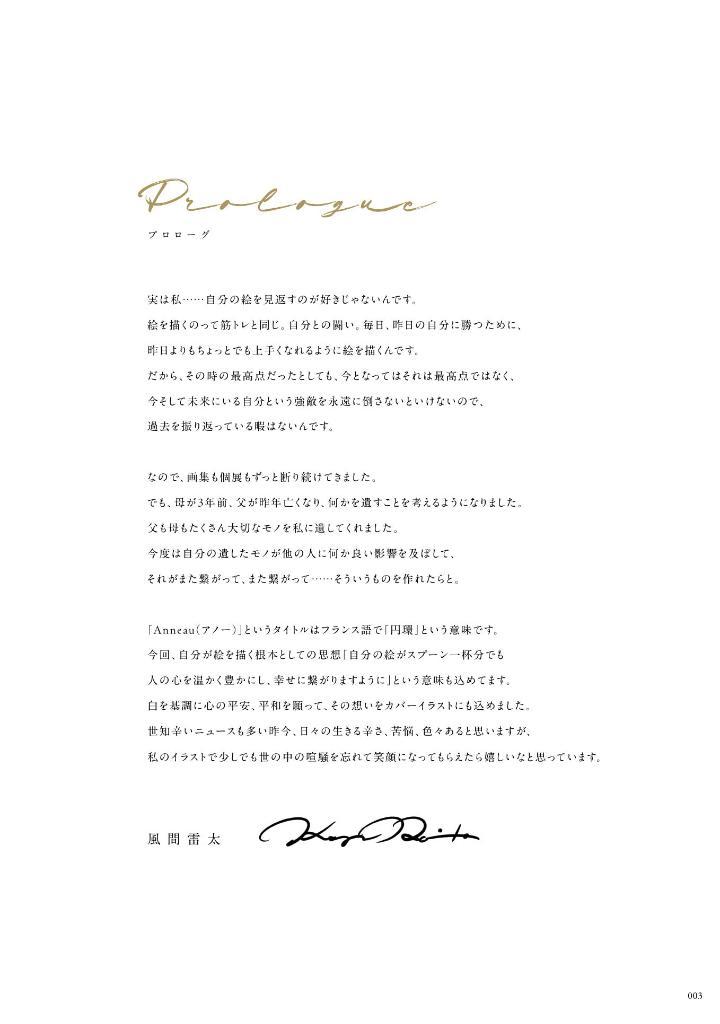 Prologue
プロローグ
実は私……自分の絵を見返すのが好きじゃないんです。
絵を描くのって筋トレと同じ。自分との闘い。毎日、昨日の自分に勝つために、
昨日よりもちょっとでも上手くなれるように絵を描くんです。
だから、その時の最高点だったとしても、今となってはそれは最高点ではなく、
今そして未来にいる自分という強敵を永遠に倒さないといけないので、
過去を振り返っている暇はないんです。
なので、画集も個展もずっと断り続けてきました。
でも、母が3年前、父が昨年亡くなり、何かを遺すことを考えるようになりました。
父も母もたくさん大切なモノを私に遺してくれました。
今度は自分の遺したモノが他の人に何か良い影響を及ぼして、
それがまた繋がって、また繋がって……そういうものを作れたらと。
「Anneau（アノー）」というタイトルはフランス語で「円環」という意味です。
今回、自分が絵を描く根本としての思想「自分の絵がスプーン一杯分でも
人の心を温かく豊かにし、幸せに繋がりますように」という意味も込めてます。
白を基調に心の平安、平和を願って、その想いをカバーイラストにも込めました。
世知辛いニュースも多い昨今、日々の生きる辛さ、苦悩、色々あると思いますが、
私のイラストで少しでも世の中の喧騒を忘れて笑顔になってもらえたら嬉しいなと思っています。
風間雷太
003